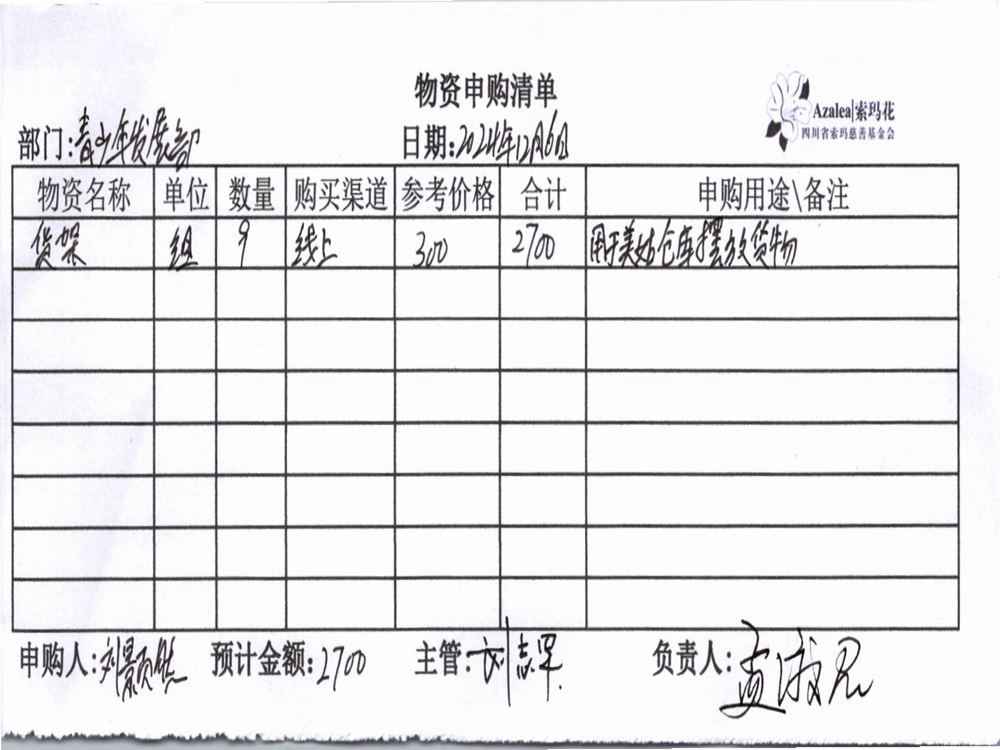 物资申购清单
Azalea|索玛花
四川省索玛慈善基金会
部门:青少年发展部 日期:2024年12月6日
物资名称 单位 数量 购买渠道 参考价格 合计 申购用途\备注
货架 组 9 线上 300 2700 用于美姑仓库摆放货物
申购人:刘颢然 预计金额:2700 主管:刘志军 负责人:孟淑君